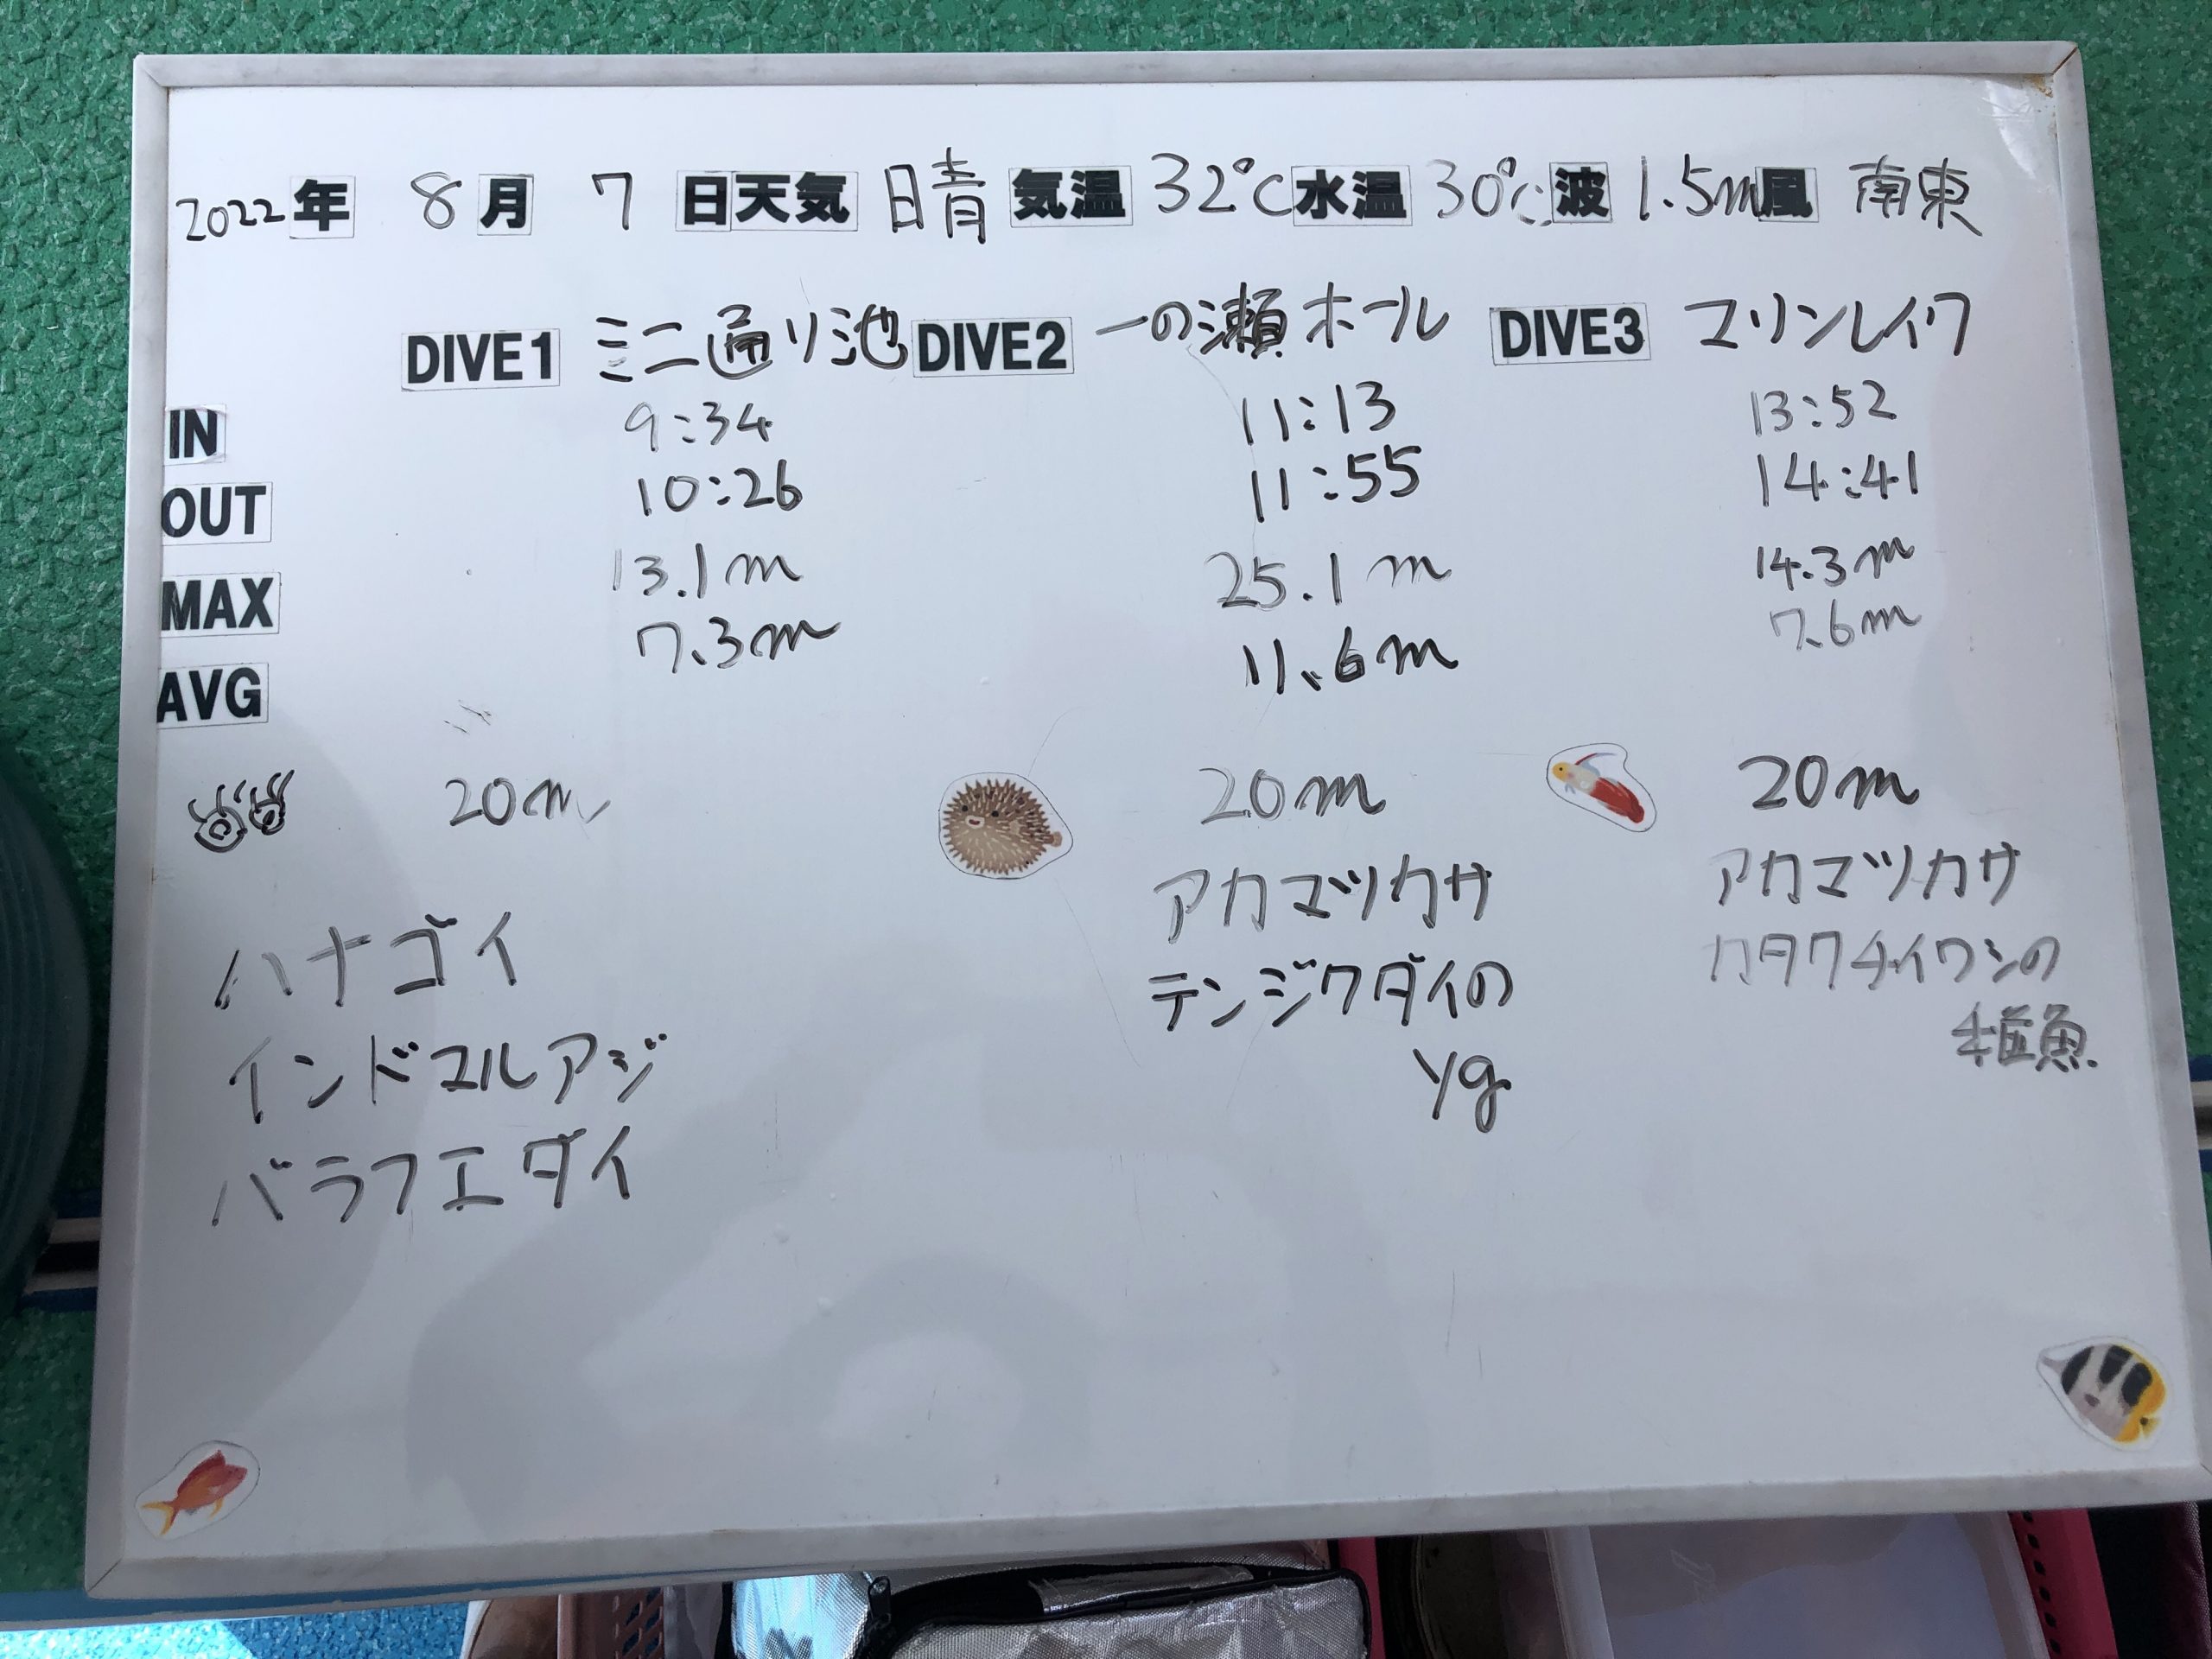 2022年 8月 7日 天気 晴 気温 32℃ 水温 30℃ 波 1.5m 風 南東
DIVE1 ミニ通り池 DIVE2 一の瀬ホール DIVE3 マリンレイク
IN 9:34 11:13 13:52
OUT 10:26 11:55 14:41
MAX 13.1m 25.1m 14.3m
AVG 7.3m 11.6m 7.6m
20m 20m 20m
ハナゴイ アカマツカサ アカマツカサ
インドマルアジ テンジクダイの カタクチイワシの
バラフエダイ yg 稚魚